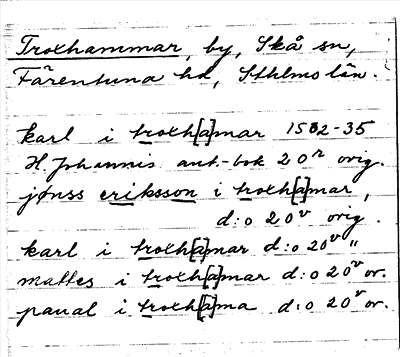 Troxhammar, by, Skå sn,
Färentuna hd, Sthlms län.
karl i troxh[a]mar 1532-35
H. Johannis ant.-bok 20r orig.
jønss eriksson i troxh[a]mar,
d:o 20v orig.
karl i troxh[a]mar d:o 20v "
mattes i troxh[a]mar d:o 20v or.
paual i troxh[a]ma d:o 20v or.